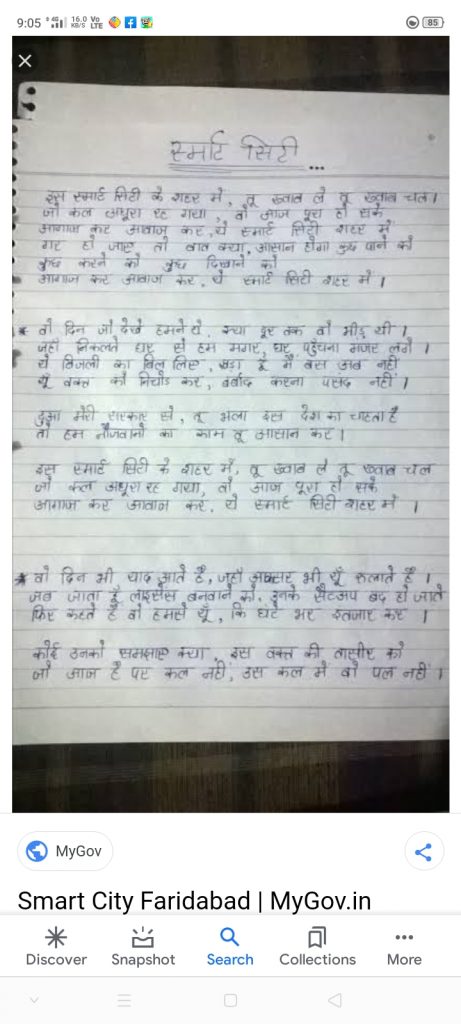 9:05 16.0 KB/S Vo LTE 85
स्मार्ट सिटी ...
इस स्मार्ट सिटी के शहर में, तू ख्वाब ले तू ख्वाब चल।
जो कल अधूरा रह गया, वो आज पूरा हो सके
आगाज कर आवाज कर, ये स्मार्ट सिटी शहर में
गर हो जाए तो बात क्या, आसान होगा कुछ पाने को
कुछ करने को कुछ दिखाने को
आगाज कर आवाज कर, ये स्मार्ट सिटी शहर में।
* वो दिन जो देखे हमने थे, क्या दूर तक वो भीड़ थी।
जहाँ निकलते घर से हम मगर, घर पहुँचना मंजर लगे।
ये बिजली का बिल लिए, खड़ा हूँ मैं बस अब नहीं
यूँ वक्त को निचोड़ कर, बर्बाद करना पसंद नहीं।
दुआ मेरी सरकार से, तू भला इस देश का चाहता है
तो हम नौजवानों का काम तू आसान कर।
इस स्मार्ट सिटी के शहर में, तू ख्वाब ले तू ख्वाब चल
जो कल अधूरा रह गया, वो आज पूरा हो सके
आगाज कर आवाज कर, ये स्मार्ट सिटी शहर में।
* वो दिन भी याद आते है, जहाँ अक्सर भी यूँ रुलाते है।
जब जाता हूँ लाइसेंस बनवाने को, उनके सैटअप बंद हो जाते
फिर कहते है वो हमसे यूँ, कि घंटे भर इंतजार कर।
कोई उनको समझाए क्या, इस वक्त की तासीर को
जो आज है पर कल नहीं, उस कल में वो पल नहीं।
MyGov
Smart City Faridabad | MyGov.in
Discover Snapshot Search Collections More